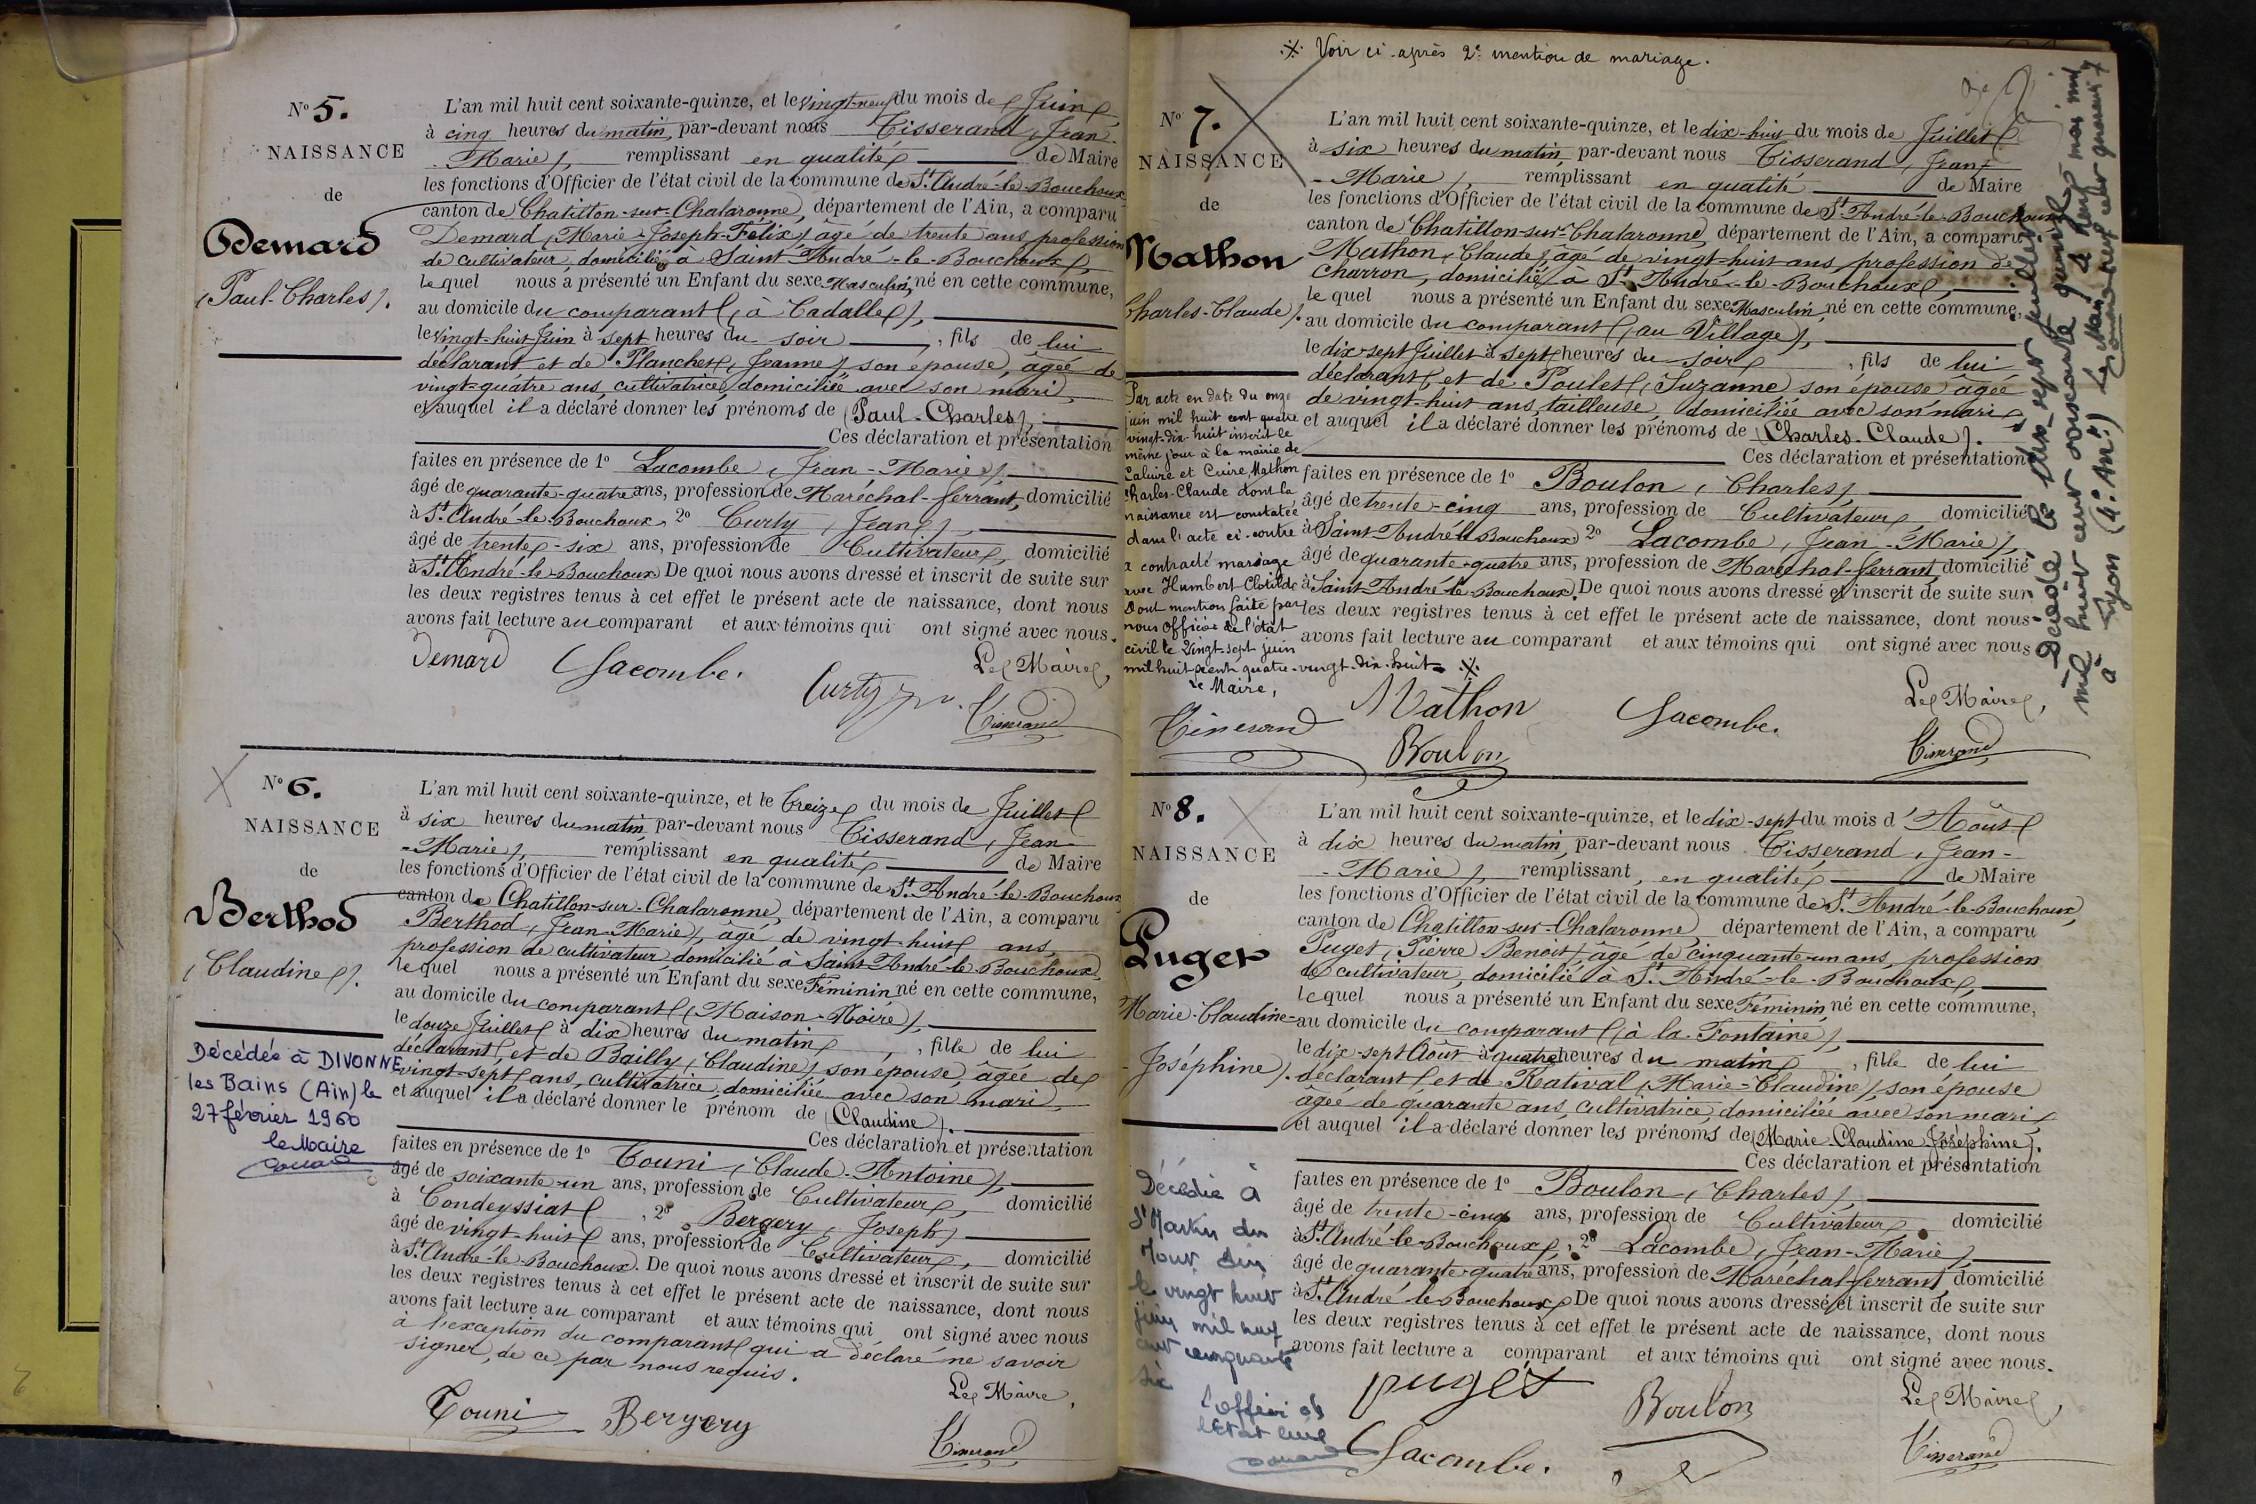 N° 5.
NAISSANCE
de
Demard
(Paul-Charles).
L'an mil huit cent soixante-quinze, et le vingt-neuf du mois de Juin
à cinq heures du matin, par-devant nous Tisserand, Jean
-Marie), remplissant en qualité de Maire
les fonctions d'Officier de l'état civil de la commune de St. André-le-Bouchoux
canton de Chatillon-sur-Chalaronne, département de l'Ain, a comparu
Demard (Marie-Joseph-Félix) âgé de trente ans, profession
de cultivateur, domicilié à Saint André-le-Bouchoux,
lequel nous a présenté un Enfant du sexe Masculin, né en cette commune,
au domicile du comparant (à Cadalles),
le vingt-huit Juin à sept heures du soir, fils de lui
déclarant et de Planchet (Jeanne) son épouse, âgée de
vingt-quatre ans, cultivatrice, domiciliée avec son mari,
et auquel il a déclaré donner les prénoms de (Paul-Charles).
Ces déclaration et présentation
faites en présence de 1° Lacombe (Jean-Marie),
âgé de quarante-quatre ans, profession de Maréchal-ferrant, domicilié
à St. André-le-Bouchoux, 2° Curty (Jean),
âgé de trente-six ans, profession de Cultivateur, domicilié
à St. André-le-Bouchoux De quoi nous avons dressé et inscrit de suite sur
les deux registres tenus à cet effet le présent acte de naissance, dont nous
avons fait lecture au comparant et aux témoins qui ont signé avec nous.
Demard Lacombe. Le Maire,
Curty Tisserand
N° 6.
NAISSANCE
de
Berthod
(Claudine).
Décédée à DIVONNE
les Bains (Ain) le
27 février 1960
le Maire
L'an mil huit cent soixante-quinze, et le treize du mois de Juillet
à six heures du matin par-devant nous Tisserand, Jean
-Marie), remplissant en qualité de Maire
les fonctions d'Officier de l'état civil de la commune de St. André-le-Bouchoux
canton de Chatillon-sur-Chalaronne, département de l'Ain, a comparu
Berthod (Jean-Marie), âgé de vingt-huit ans,
profession de cultivateur, domicilié à Saint-André-le-Bouchoux,
lequel nous a présenté un Enfant du sexe Féminin né en cette commune,
au domicile du comparant (Maison-Noire),
le douze Juillet à dix heures du matin, fille de lui
déclarant, et de Bailly (Claudine) son épouse, âgée de
vingt-sept ans, cultivatrice, domiciliée avec son mari,
et auquel il a déclaré donner le prénom de (Claudine).
Ces déclaration et présentation
faites en présence de 1° Touni (Claude-Antoine),
âgé de soixante-un ans, profession de Cultivateur, domicilié
à Condeyssiat, 2° Bergery, Joseph)
âgé de vingt-huit ans, profession de Cultivateur, domicilié
à St. André-le-Bouchoux. De quoi nous avons dressé et inscrit de suite sur
les deux registres tenus à cet effet le présent acte de naissance, dont nous
avons fait lecture au comparant et aux témoins qui ont signé avec nous
à l'exception du comparant qui a déclaré ne savoir
signer, de ce par nous requis.
Le Maire,
Touni Bergery Tisserand
.X. Voir ci-après 2e mention de mariage.
N° 7.
NAISSANCE
de
Mathon
Charles-Claude).
Par acte en date du onze
juin mil huit cent quatre
vingt-dix-huit inscrit le
même jour à la mairie de
Caluire et Cuire, Mathon
Charles-Claude dont la
naissance est constatée
dans l'acte ci-contre
a contracté mariage
avec Humbert Clotilde
Dont mention faite par
nous Officier de l'état
civil le vingt-sept juin
mil huit cent quatre-vingt-dix-huit .X.
Le Maire,
Tisserand
L'an mil huit cent soixante-quinze, et le dix-huit du mois de Juillet
à six heures du matin, par-devant nous Tisserand, Jean
-Marie), remplissant en qualité de Maire
les fonctions d'Officier de l'état civil de la commune de St. André-le-Bouchoux
canton de Chatillon-sur-Chalaronne, département de l'Ain, a comparu
Mathon, Claude), âgé de vingt-huit ans, profession de
charron, domicilié à St. André-le-Bouchoux,
lequel nous a présenté un Enfant du sexe Masculin, né en cette commune,
au domicile du comparant (au Village),
le dix-sept Juillet à sept heures du soir, fils de lui
déclarant, et de Poulet (Suzanne) son épouse âgée
de vingt-huit ans, tailleuse, domiciliée avec son mari
et auquel il a déclaré donner les prénoms de (Charles-Claude).
Ces déclaration et présentation
faites en présence de 1° Boulon (Charles),
âgé de trente-cinq ans, profession de Cultivateur, domicilié
à Saint André-le-Bouchoux 2° Lacombe, Jean-Marie),
âgé de quarante-quatre ans, profession de Maréchal-ferrant, domicilié
à Saint André-le-Bouchoux. De quoi nous avons dressé et inscrit de suite sur
les deux registres tenus à cet effet le présent acte de naissance, dont nous
avons fait lecture au comparant et aux témoins qui ont signé avec nous
Le Maire,
Mathon Lacombe.
Boulon Tisserand
Décédé le dix-sept juillet
mil huit cent soixante quinze
à Lyon (4e Arr.) le
N° 8.
NAISSANCE
de
Puget
Marie-Claudine-
-Joséphine).
Décédée à
St Martin du
Mont Ain
le vingt huit
juin mil neuf
cent cinquante
six
L'officier de
l'Etat civil
L'an mil huit cent soixante-quinze, et le dix-sept du mois d'Août
à dix heures du matin, par-devant nous Tisserand, Jean-
-Marie), remplissant en qualité de Maire
les fonctions d'Officier de l'état civil de la commune de St. André-le-Bouchoux,
canton de Chatillon-sur-Chalaronne, département de l'Ain, a comparu
Puget, Pierre Benoit), âgé de cinquante-un ans, profession
de cultivateur, domicilié à St. André-le-Bouchoux,
lequel nous a présenté un Enfant du sexe Féminin, né en cette commune,
au domicile du comparant (à la Fontaine),
le dix-sept Août à quatre heures du matin, fille de lui
déclarant, et de Rativat (Marie-Claudine), son épouse
âgée de quarante ans, cultivatrice, domiciliée avec son mari,
et auquel il a déclaré donner les prénoms de (Marie-Claudine Joséphine).
Ces déclaration et présentation
faites en présence de 1° Boulon (Charles),
âgé de trente-cinq ans, profession de Cultivateur domicilié
à St. André-le-Bouchoux, 2° Lacombe, Jean-Marie),
âgé de quarante-quatre ans, profession de Maréchal-ferrant, domicilié
à St. André-le-Bouchoux De quoi nous avons dressé et inscrit de suite sur
les deux registres tenus à cet effet le présent acte de naissance, dont nous
avons fait lecture a comparant et aux témoins qui ont signé avec nous.
puget Boulon Le Maire,
Lacombe. Tisserand